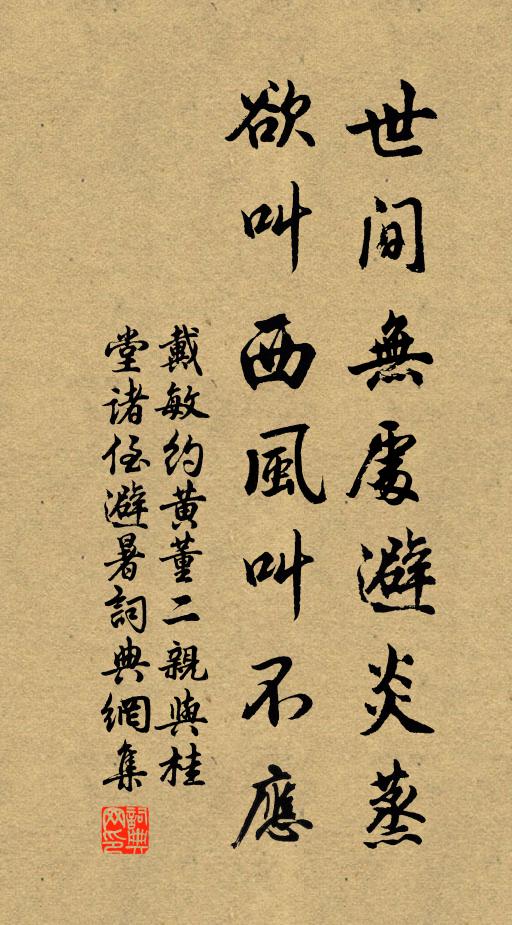 世間無處避炎蒸
欲叫西風叫不應
戴敏約黃董二親與桂
堂诸侄避暑詞典網集
詞典
网印